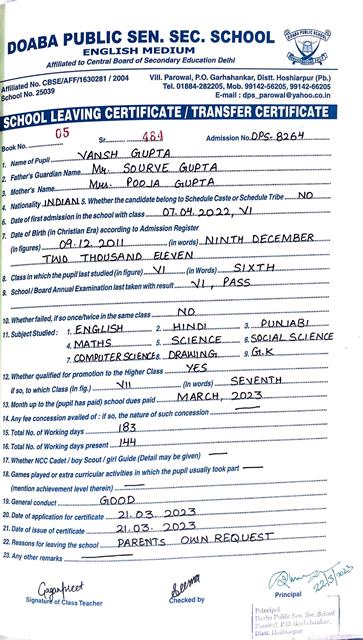 DOABA PUBLIC SEN. SEC. SCHOOL
ENGLISH MEDIUM
Affiliated to Central Board of Secondary Education Delhi
Affiliated No. CBSE/AFF/1630281 / 2004
School No. 25039
Vill. Parowal, P.O. Garhshankar, Distt. Hoshiarpur (Pb.)
Tel. 01884-282205, Mob. 99142-56205, 99142-66205
E-mail : dps_parowal@yahoo.co.in
SCHOOL LEAVING CERTIFICATE / TRANSFER CERTIFICATE
Book No. 05 Sr. 484 Admission No. DPS-8264
1. Name of Pupil VANSH GUPTA
2. Father's Guardian Name Mr. SOURVE GUPTA
3. Mother's Name Mrs. POOJA GUPTA
4. Nationality INDIAN 5. Whether the candidate belong to Schedule Caste or Schedule Tribe NO
6. Date of first admission in the school with class 07.04.2022, VI
7. Date of Birth (in Christian Era) according to Admission Register
(in figures) 09.12.2011 (in words) NINTH DECEMBER
TWO THOUSAND ELEVEN
8. Class in which the pupil last studied (in figure) VI (in Words) SIXTH
9. School / Board Annual Examination last taken with result VI, PASS
10. Whether failed, if so once/twice in the same class NO
11. Subject Studied : 1. ENGLISH 2. HINDI 3. PUNJABI
4. MATHS 5. SCIENCE 6. SOCIAL SCIENCE
7. COMPUTER SCIENCE 8. DRAWING 9. G.K
12. Whether qualified for promotion to the Higher Class YES
if so, to which Class (In fig.) VII (in Words) SEVENTH
13. Month up to the (pupil has paid) school dues paid MARCH, 2023
14. Any fee concession availed of : if so, the nature of such concession
15. Total No. of Working days 183
16. Total No. of Working days present 144
17. Whether NCC Cadet / boy Scout / girl Guide (Detail may be given)
18. Games played or extra curricular activities in which the pupil usually took part
(mention achievement level therein)
19. General conduct GOOD
20. Date of application for certificate 21.03.2023
21. Date of issue of certificate 21.03.2023
22. Reasons for leaving the school PARENTS OWN REQUEST
23. Any other remarks
Gaganpreet Seema 22/3/2023
Signature of Class Teacher Checked by Principal
Principal
Doaba Public Sen. Sec. School
Parowal, P.O. Garhshankar,
Distt. Hoshiarpur